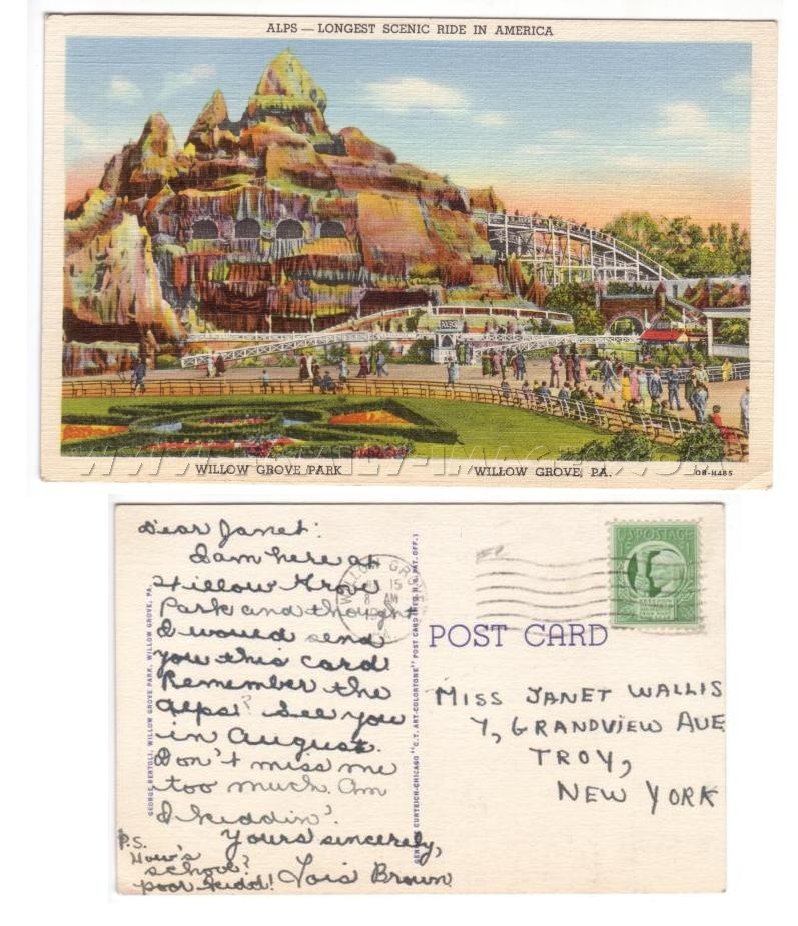 ALPS — LONGEST SCENIC RIDE IN AMERICA
RIDE
WILLOW GROVE PARK WILLOW GROVE, PA. OB-H485
Dear Janet:
I am here at
Willow Grove
Park and thought
I would send
you this card
Remember the
Alps? See you
in August.
Don't miss me
too much. Am
I kiddin'.
Yours sincerely,
Lois Brown
P.S.
How's
school?
poor kidd!
GEORGE BERTOLI, WILLOW GROVE PARK, WILLOW GROVE, PA.
CURTEICH-CHICAGO "C.T. ART-COLORTONE" POST CARD (REG. U.S. PAT. OFF.)
WILLOW GROVE
15
8 AM
PA
POSTAGE
POST CARD
MISS JANET WALLIS
7, GRANDVIEW AVE
TROY,
NEW YORK